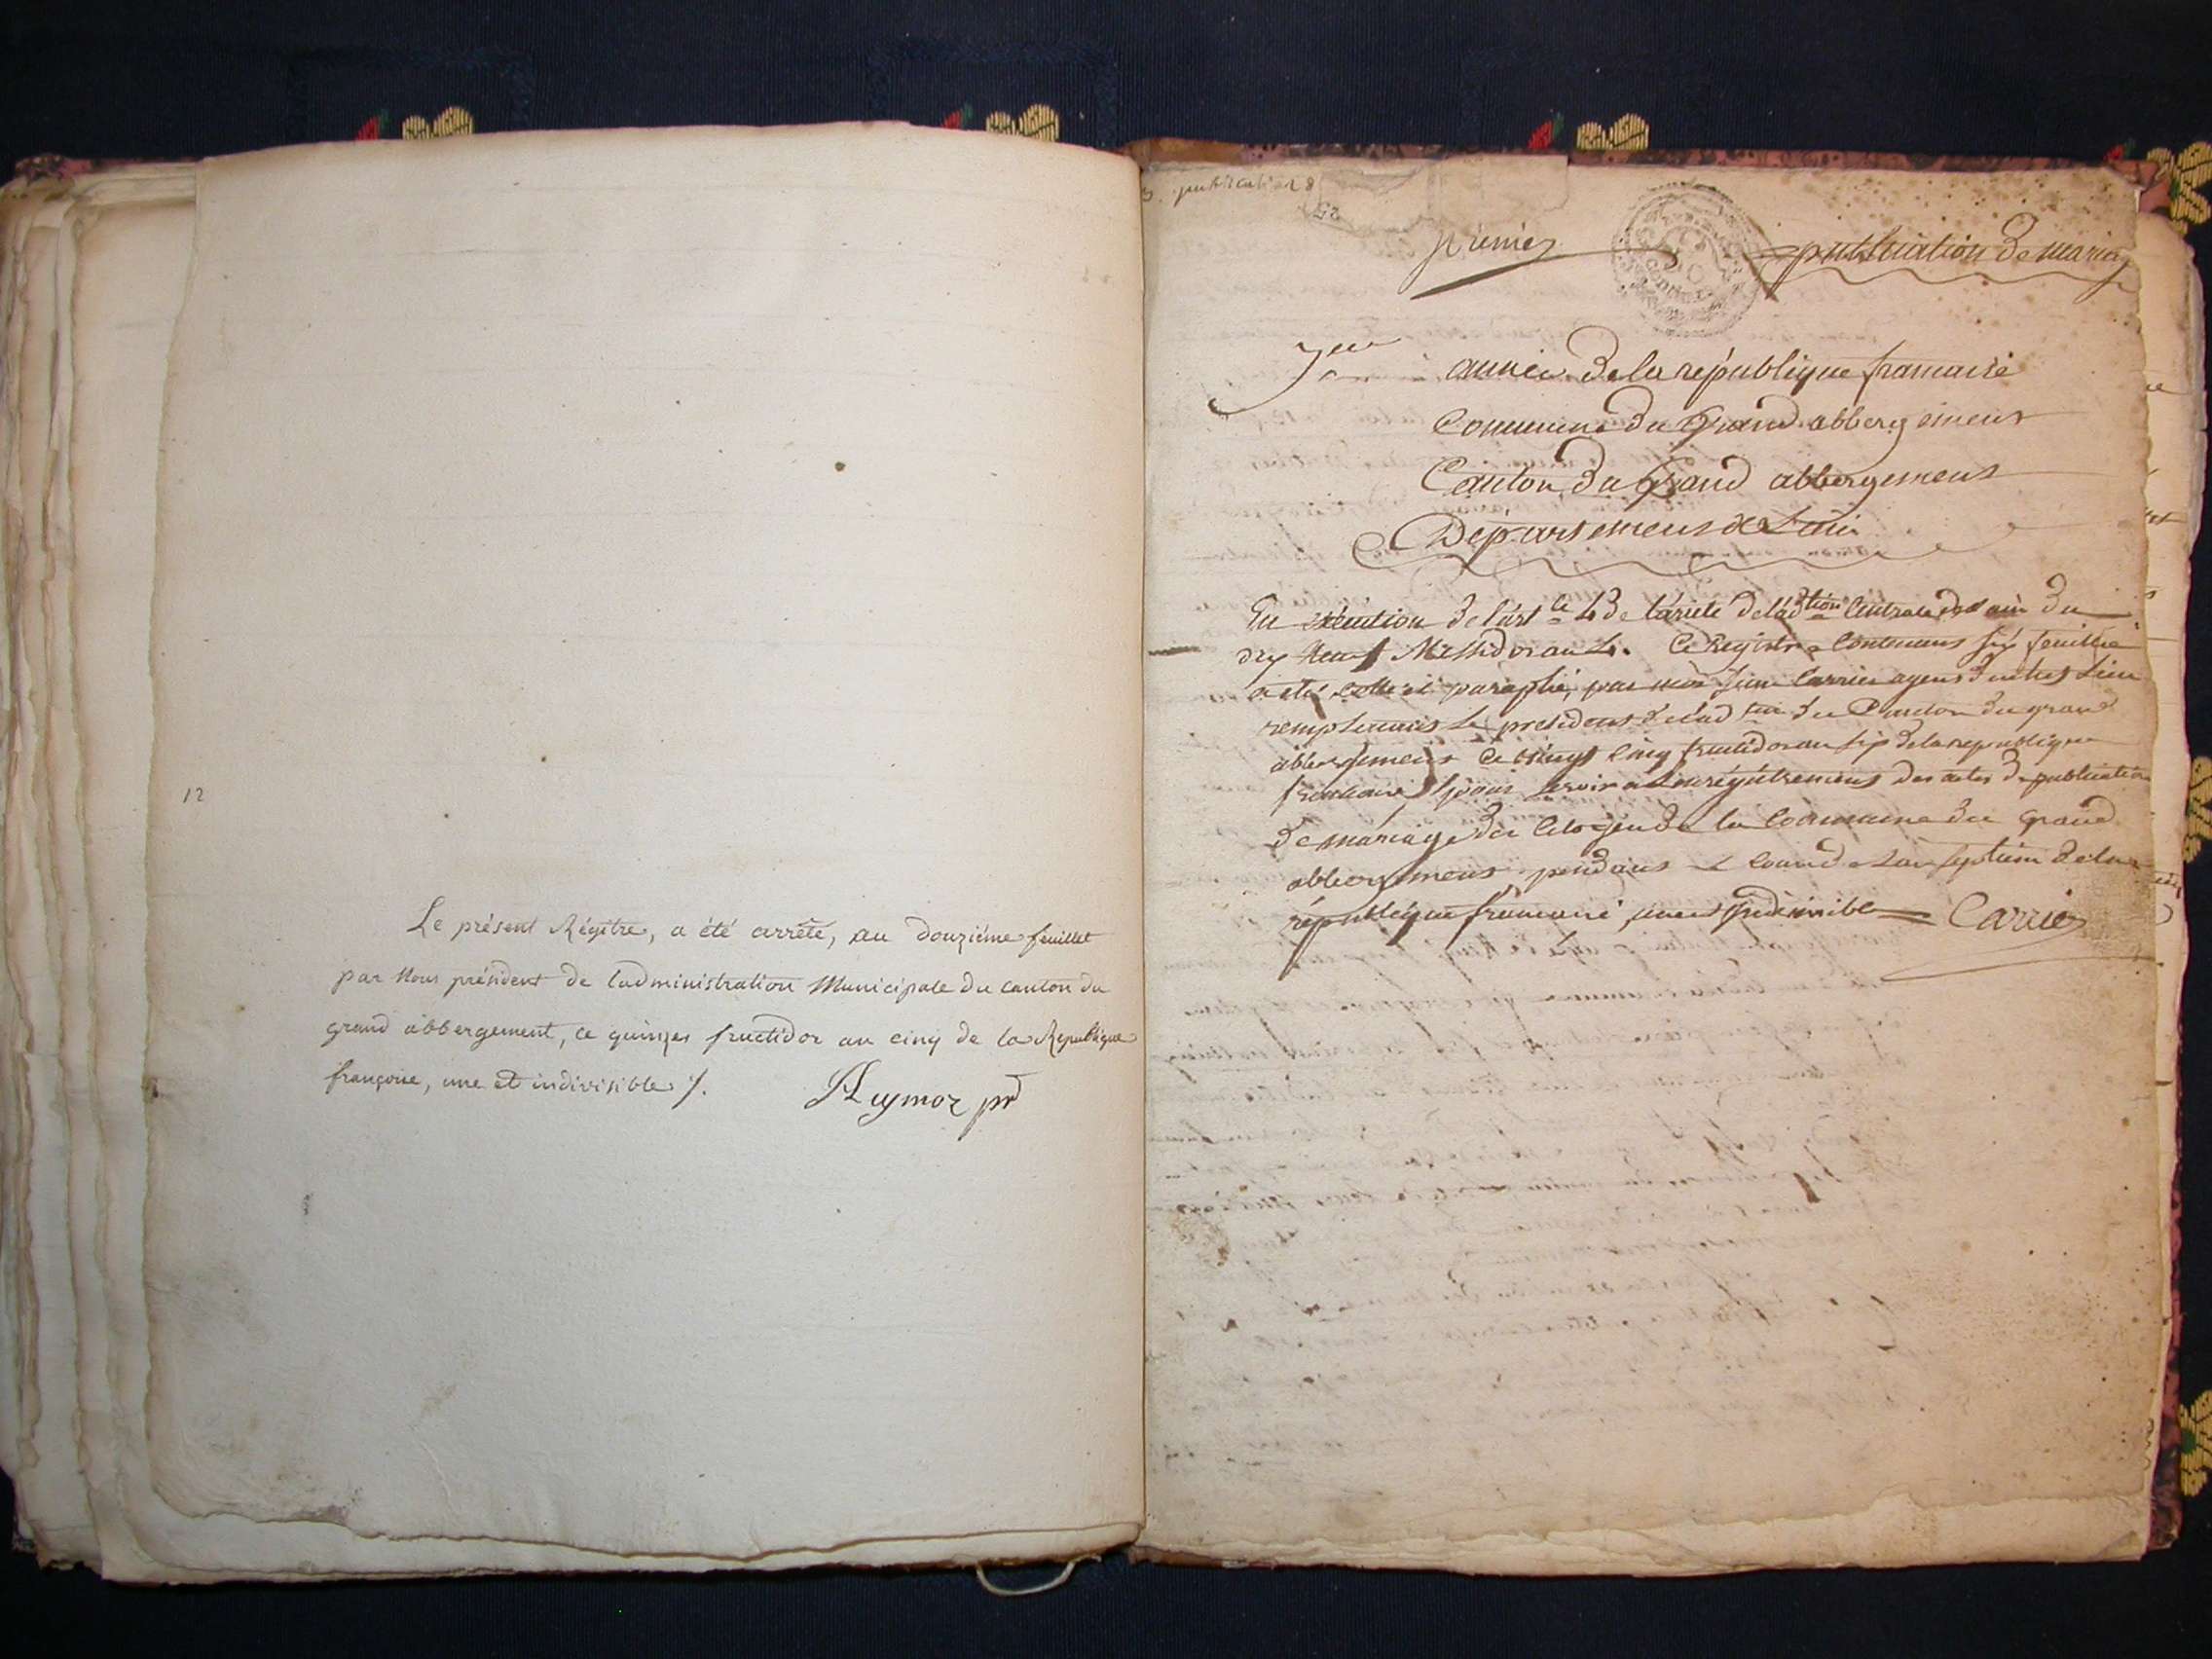 12
Le présent Régitre, a été arrêté, au douziéme feuillet
par Nous président de l'administration Municipale du canton du
grand abbergement, ce quinzes fructidor an cinq de la Republique
françoise, une et indivisible ./.
Aymoz pnd
publication
premier publication de mariage
7eme année de la république francaise
Commune du Grand abbergement
Canton du Grand abbergement
Département de L'ain
En exécution de l'art le 4 de l'arieté de l'adtion Centrale de L'ain du
dix neuf Messidor an 4. Ce Registre Contenant six feuillie
a eté cotté et paraphé, par moi Carrier agent dudit Lieu
remplacant le president de l'adtion du Canton du grand
abbergement ce vingt cinq fructidor an six de la republique
francaise pour servir a L'enregistrement des actes de publication
de mariage des Citoyen de la Commune du Grand
abbergement pendant le Courant de L'an septiem de la
république francaise, une et indivisible Carrier